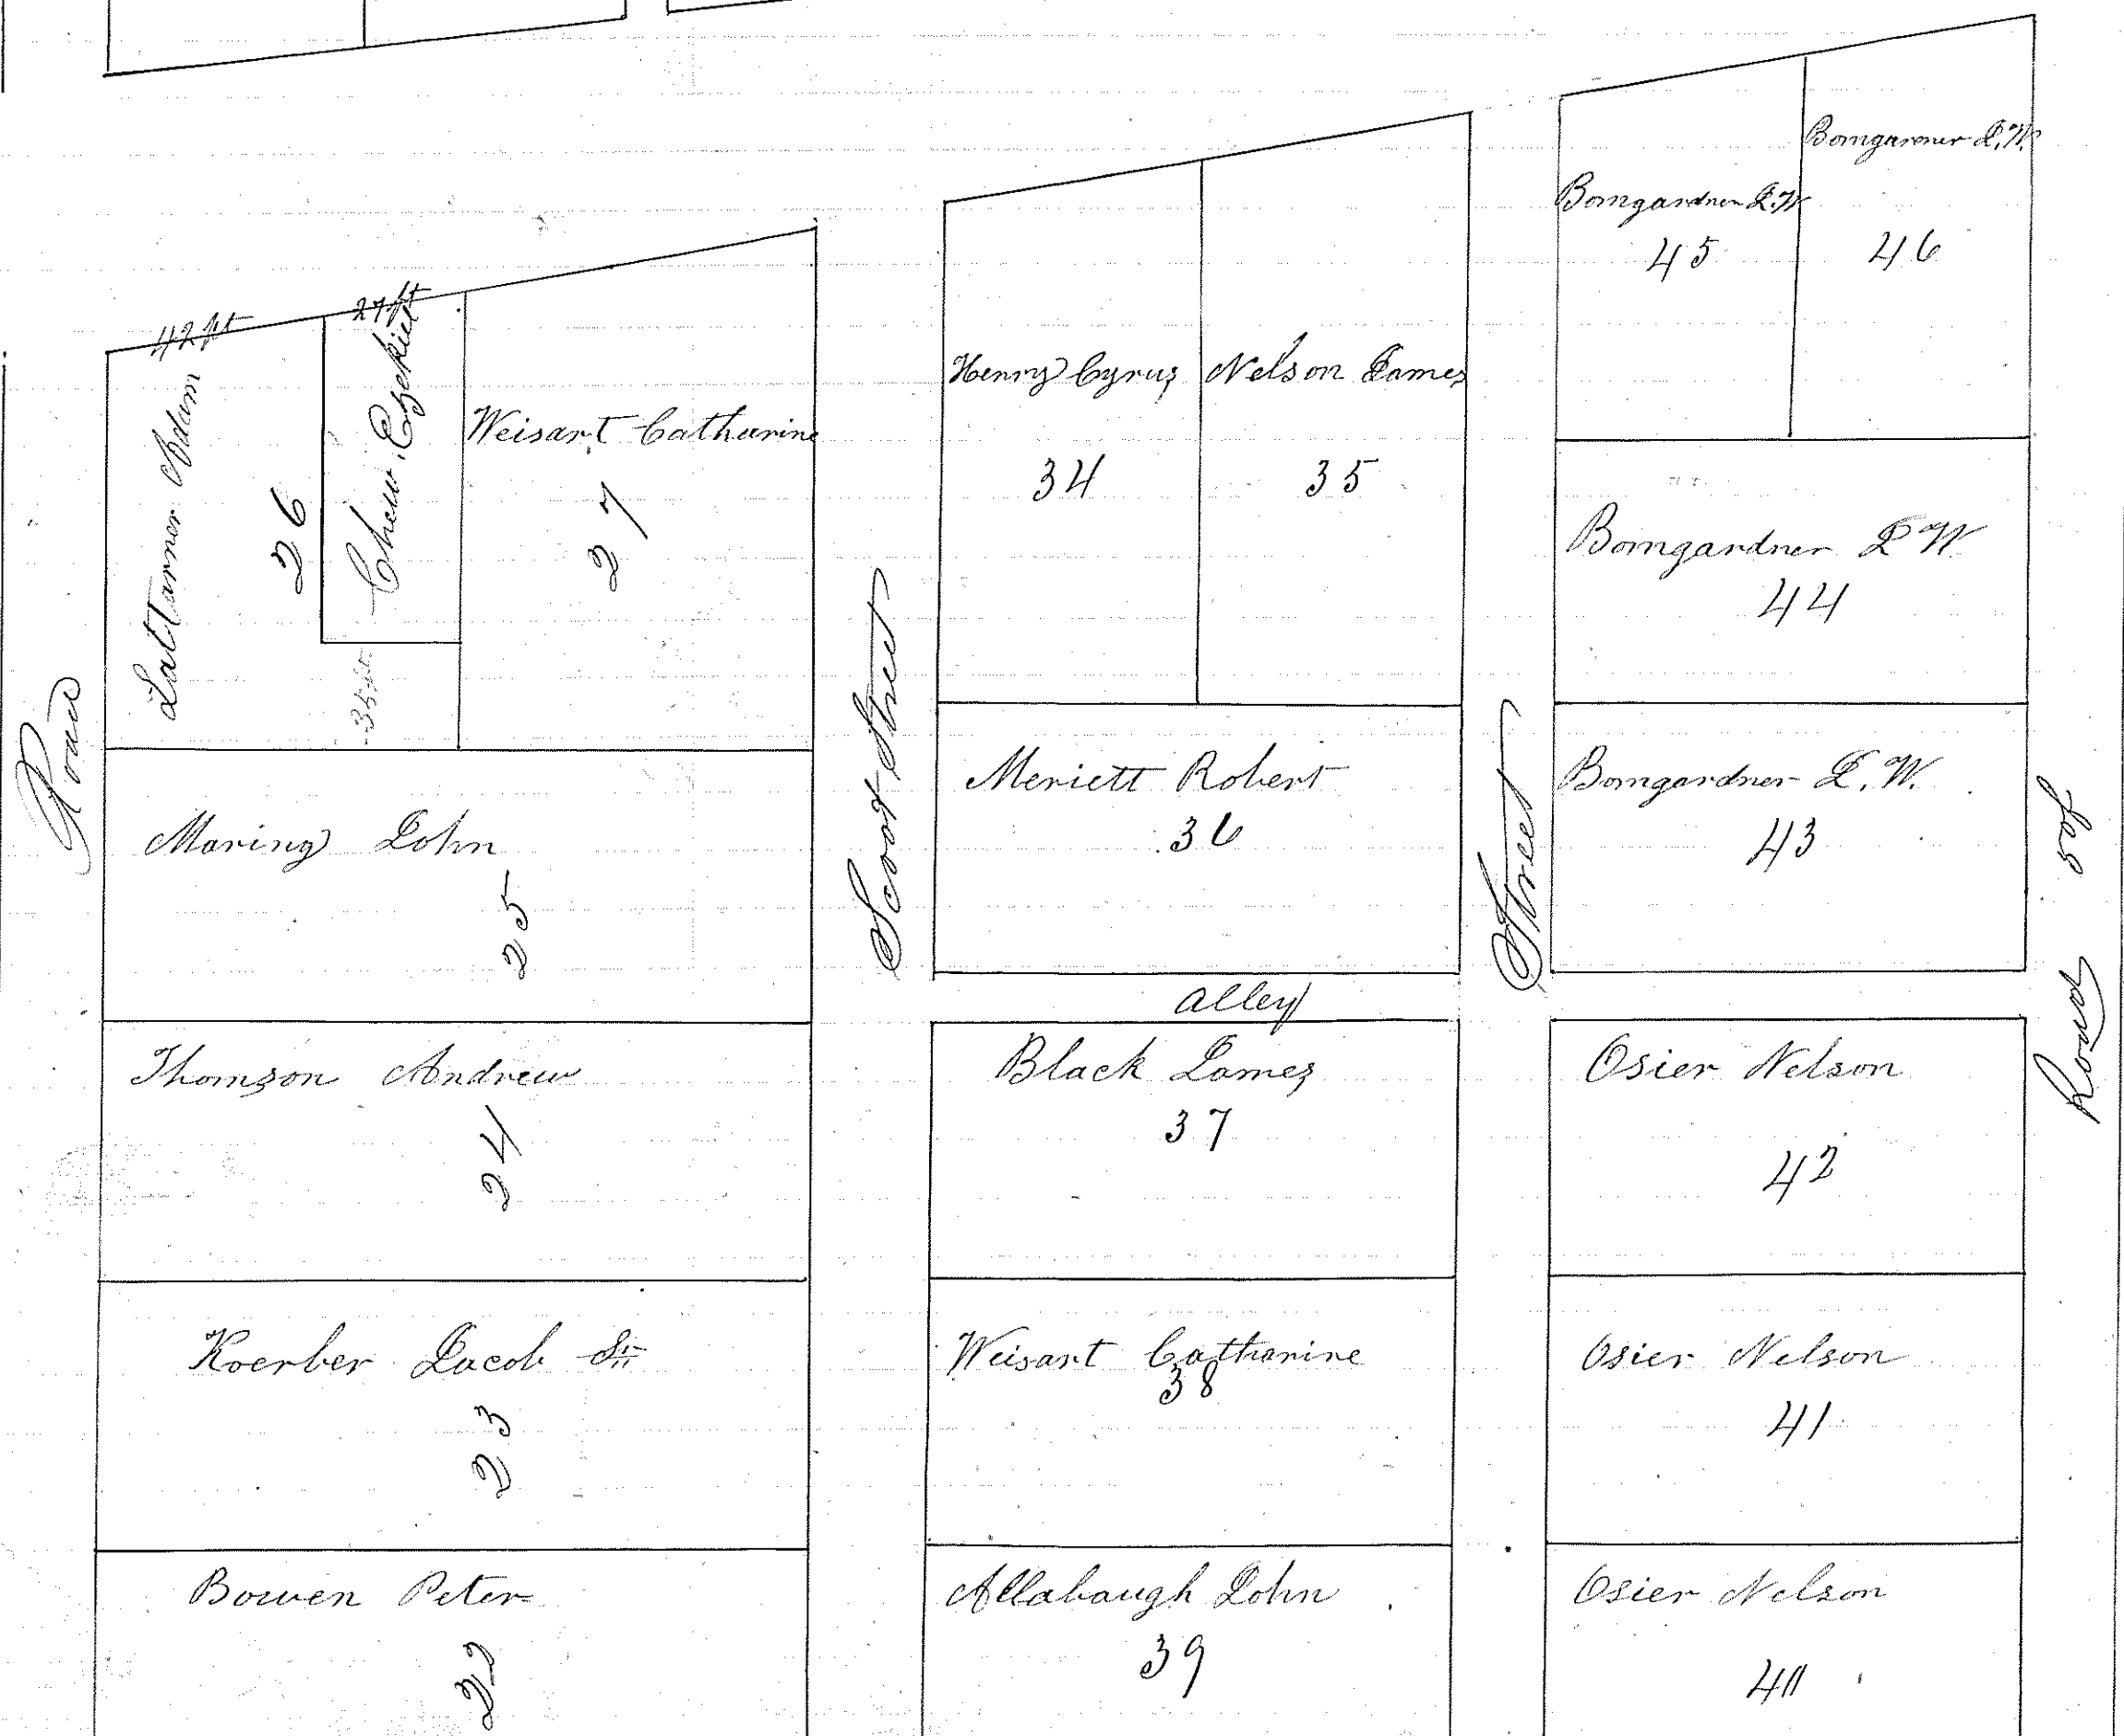 42 ft
27 ft
Lattarner Adam
26
Chew Ezekiel
35 ft
Weisart Catharine
27
Road
Maring John
25
Thomson Andrew
24
Koerber Jacob Sr
23
Bowen Peter
22
Scoot Street
Henry Cyrus
34
Nelson James
35
Meriett Robert
36
Alley
Black James
37
Weisart Catharine
38
Allabaugh John
39
Street
Bomgardner J.W
45
Bomgardner J.W.
46
Bomgardner J W
44
Bomgardner J. W.
43
Osier Nelson
42
Osier Nelson
41
Osier Nelson
40
Road 50f